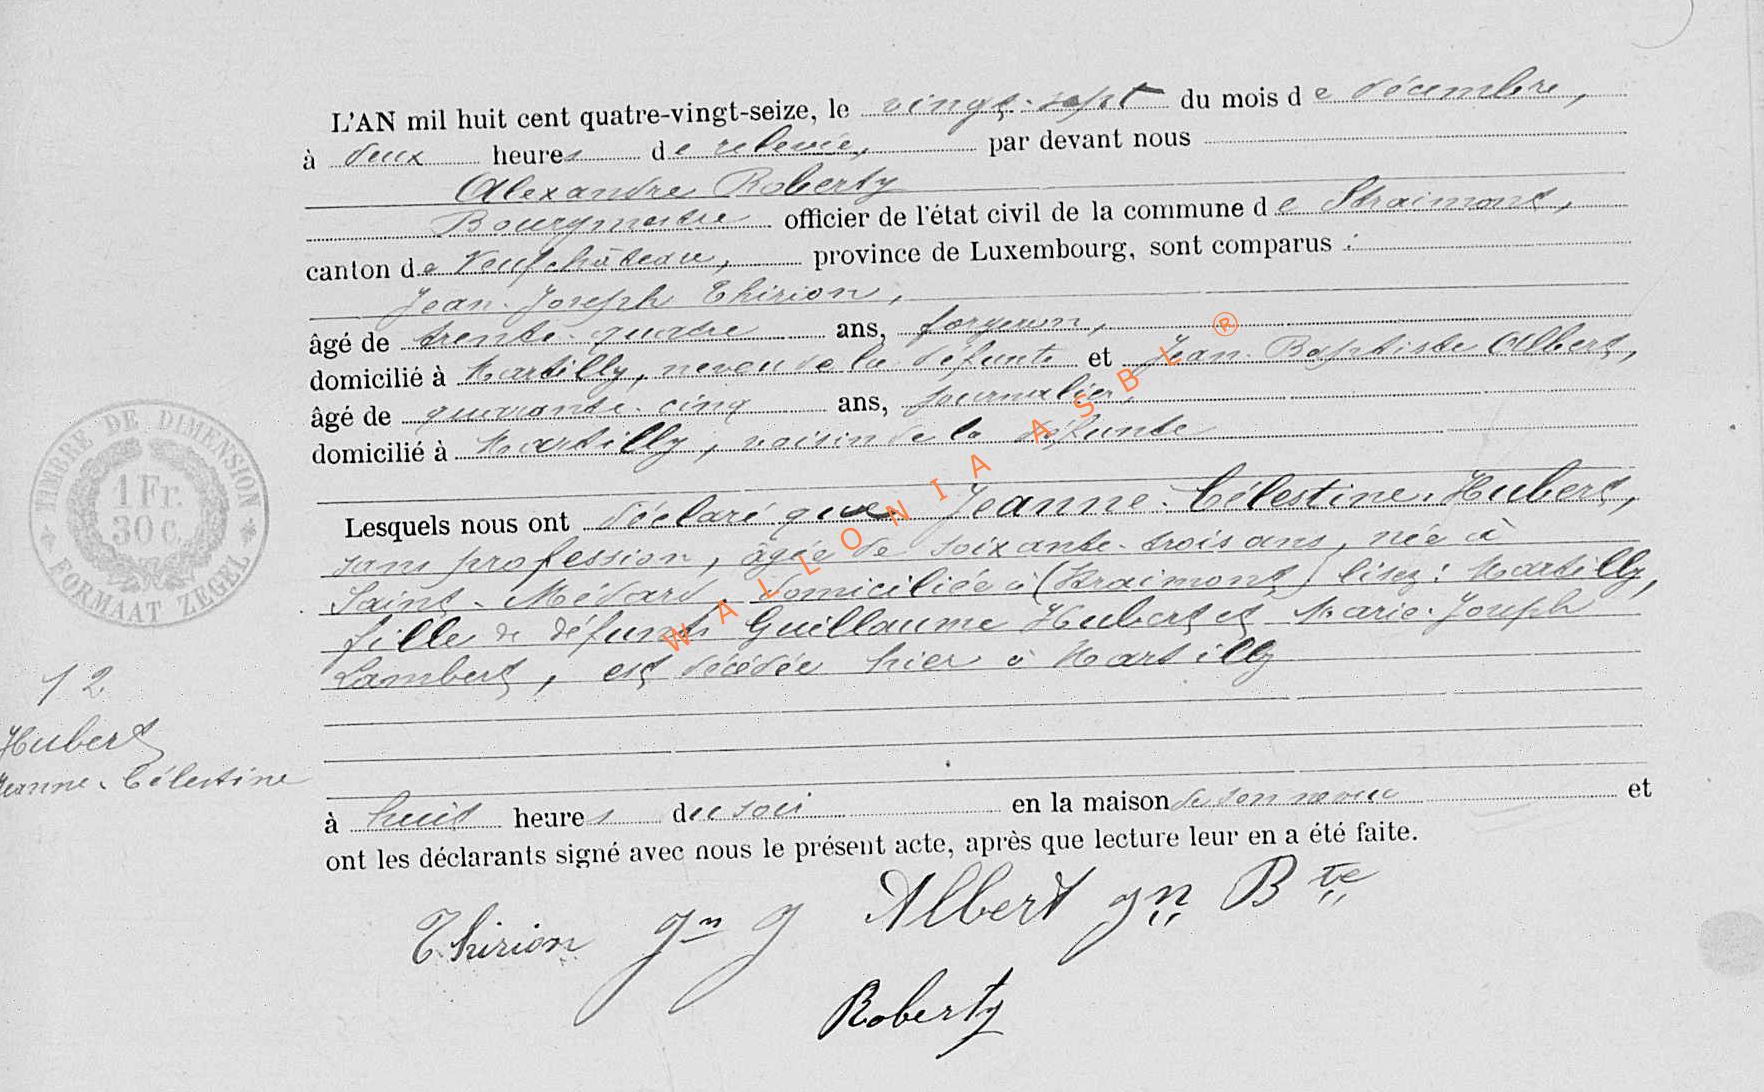 L'AN mil huit cent quatre-vingt-seize, le vingt-sept du mois de décembre,
à deux heures de relevée, par devant nous
Alexandre Roberty
Bourgmestre officier de l'état civil de la commune de Straimont,
canton de Neufchâteau, province de Luxembourg, sont comparus :
Jean-Joseph Thirion,
âgé de trente-quatre ans, forgeron,
domicilié à Martilly, neveu de la défunte et Jean-Baptiste Albert,
âgé de quarante-cinq ans, journalier,
domicilié à Martilly, voisin de la défunte
Lesquels nous ont déclaré que Jeanne-Célestine Hubert,
sans profession, âgée de soixante-trois ans, née à
Saint-Médard, domiciliée à (Straimont) lisez : Martilly,
fille de défunts Guillaume Hubert et Marie-Joseph
Lambert, est décédée hier à Martilly
à huit heures du soir en la maison de son neveu et
ont les déclarants signé avec nous le présent acte, après que lecture leur en a été faite.
12
Hubert
Jeanne-Célestine
Thirion Jn J Albert Jn Bte
Roberty
TIMBRE DE DIMENSION
1 Fr.
30 c.
FORMAAT ZEGEL
WALLONIA ASBL ®